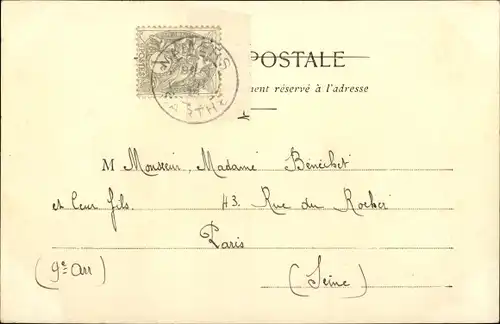 POSTALE
ment réservé à l'adresse
M Monsieur, Madame Bénéchet
et leur fils. 43. Rue du Rocher
Paris
(9e arr) (Seine)